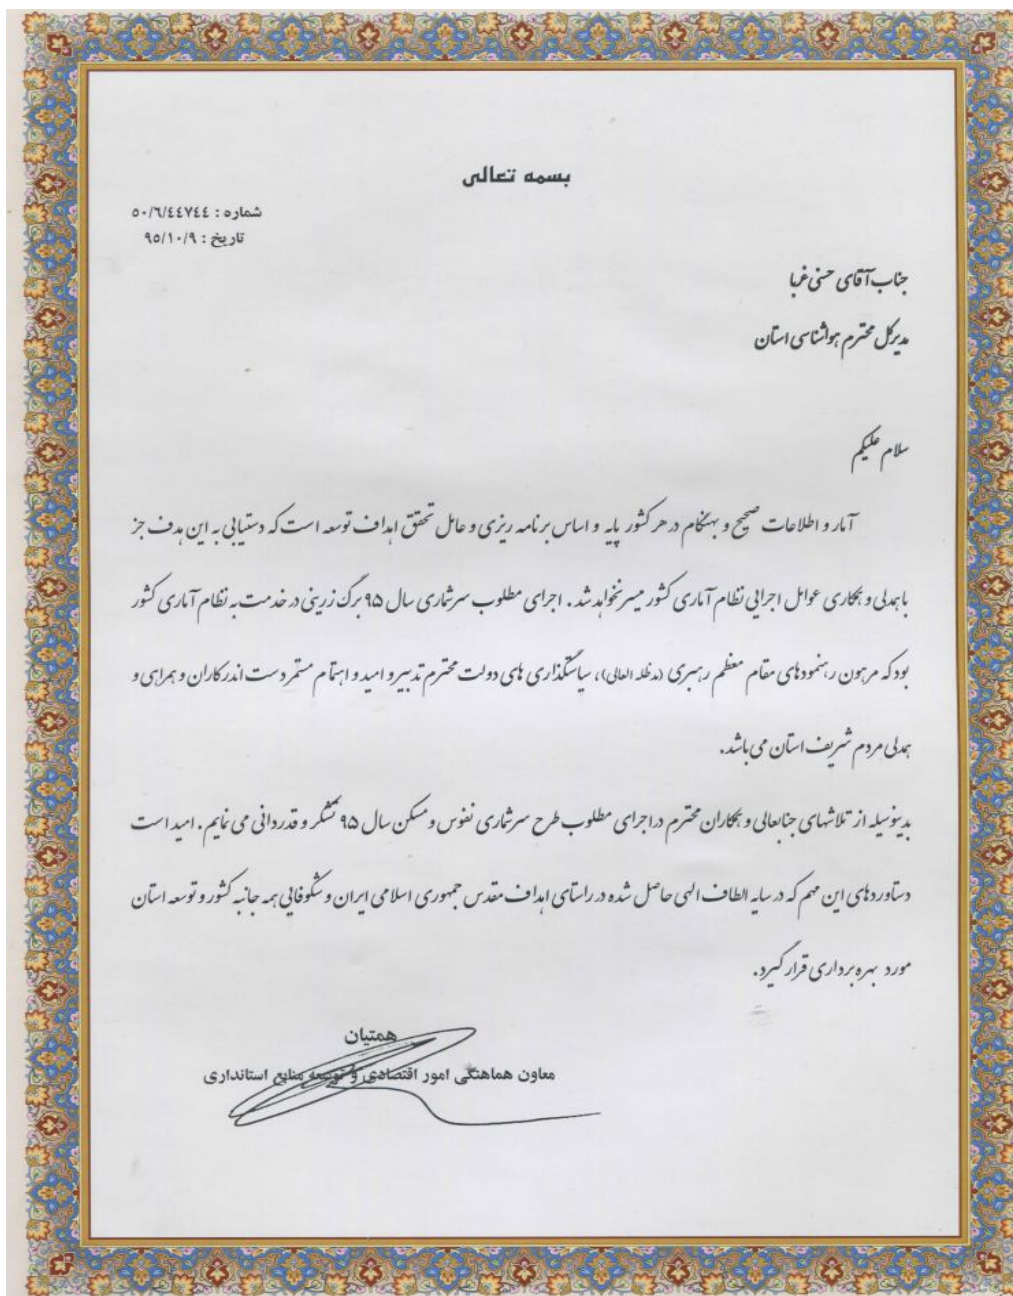 بسمه تعالی
شماره : ۵۰/۶/٤٤٧٤٤
تاریخ : ۹۵/۱۰/۹
جناب آقای حسنی غربا
مدیرکل محترم هواشناسی استان
سلام علیکم
آمار و اطلاعات صحیح و بهنگام در هر کشور پایه و اساس برنامه ریزی و عامل تحقق اهداف توسعه است که دستیابی به این هدف جز
با همدلی و همکاری عوامل اجرایی نظام آماری کشور میسر نخواهد شد . اجرای مطلوب سرشماری سال ۹۵ برگ زرینی در خدمت به نظام آماری کشور
بود که مرهون رهنمودهای مقام معظم رهبری (مدظله العالی)، سیاستگذاری های دولت محترم تدبیر و امید و اهتمام مستمر دست اندرکاران و همراهی و
همدلی مردم شریف استان می باشد .
بدینوسیله از تلاشهای جنابعالی و همکاران محترم در اجرای مطلوب طرح سرشماری نفوس و مسکن سال ۹۵ تشکر و قدردانی می نمایم . امید است
دستاوردهای این مهم که در سایه الطاف الهی حاصل شده در راستای اهداف مقدس جمهوری اسلامی ایران و شکوفایی همه جانبه کشور و توسعه استان
مورد بهره برداری قرار گیرد .
همتیان
معاون هماهنگی امور اقتصادی و توسعه منابع استانداری